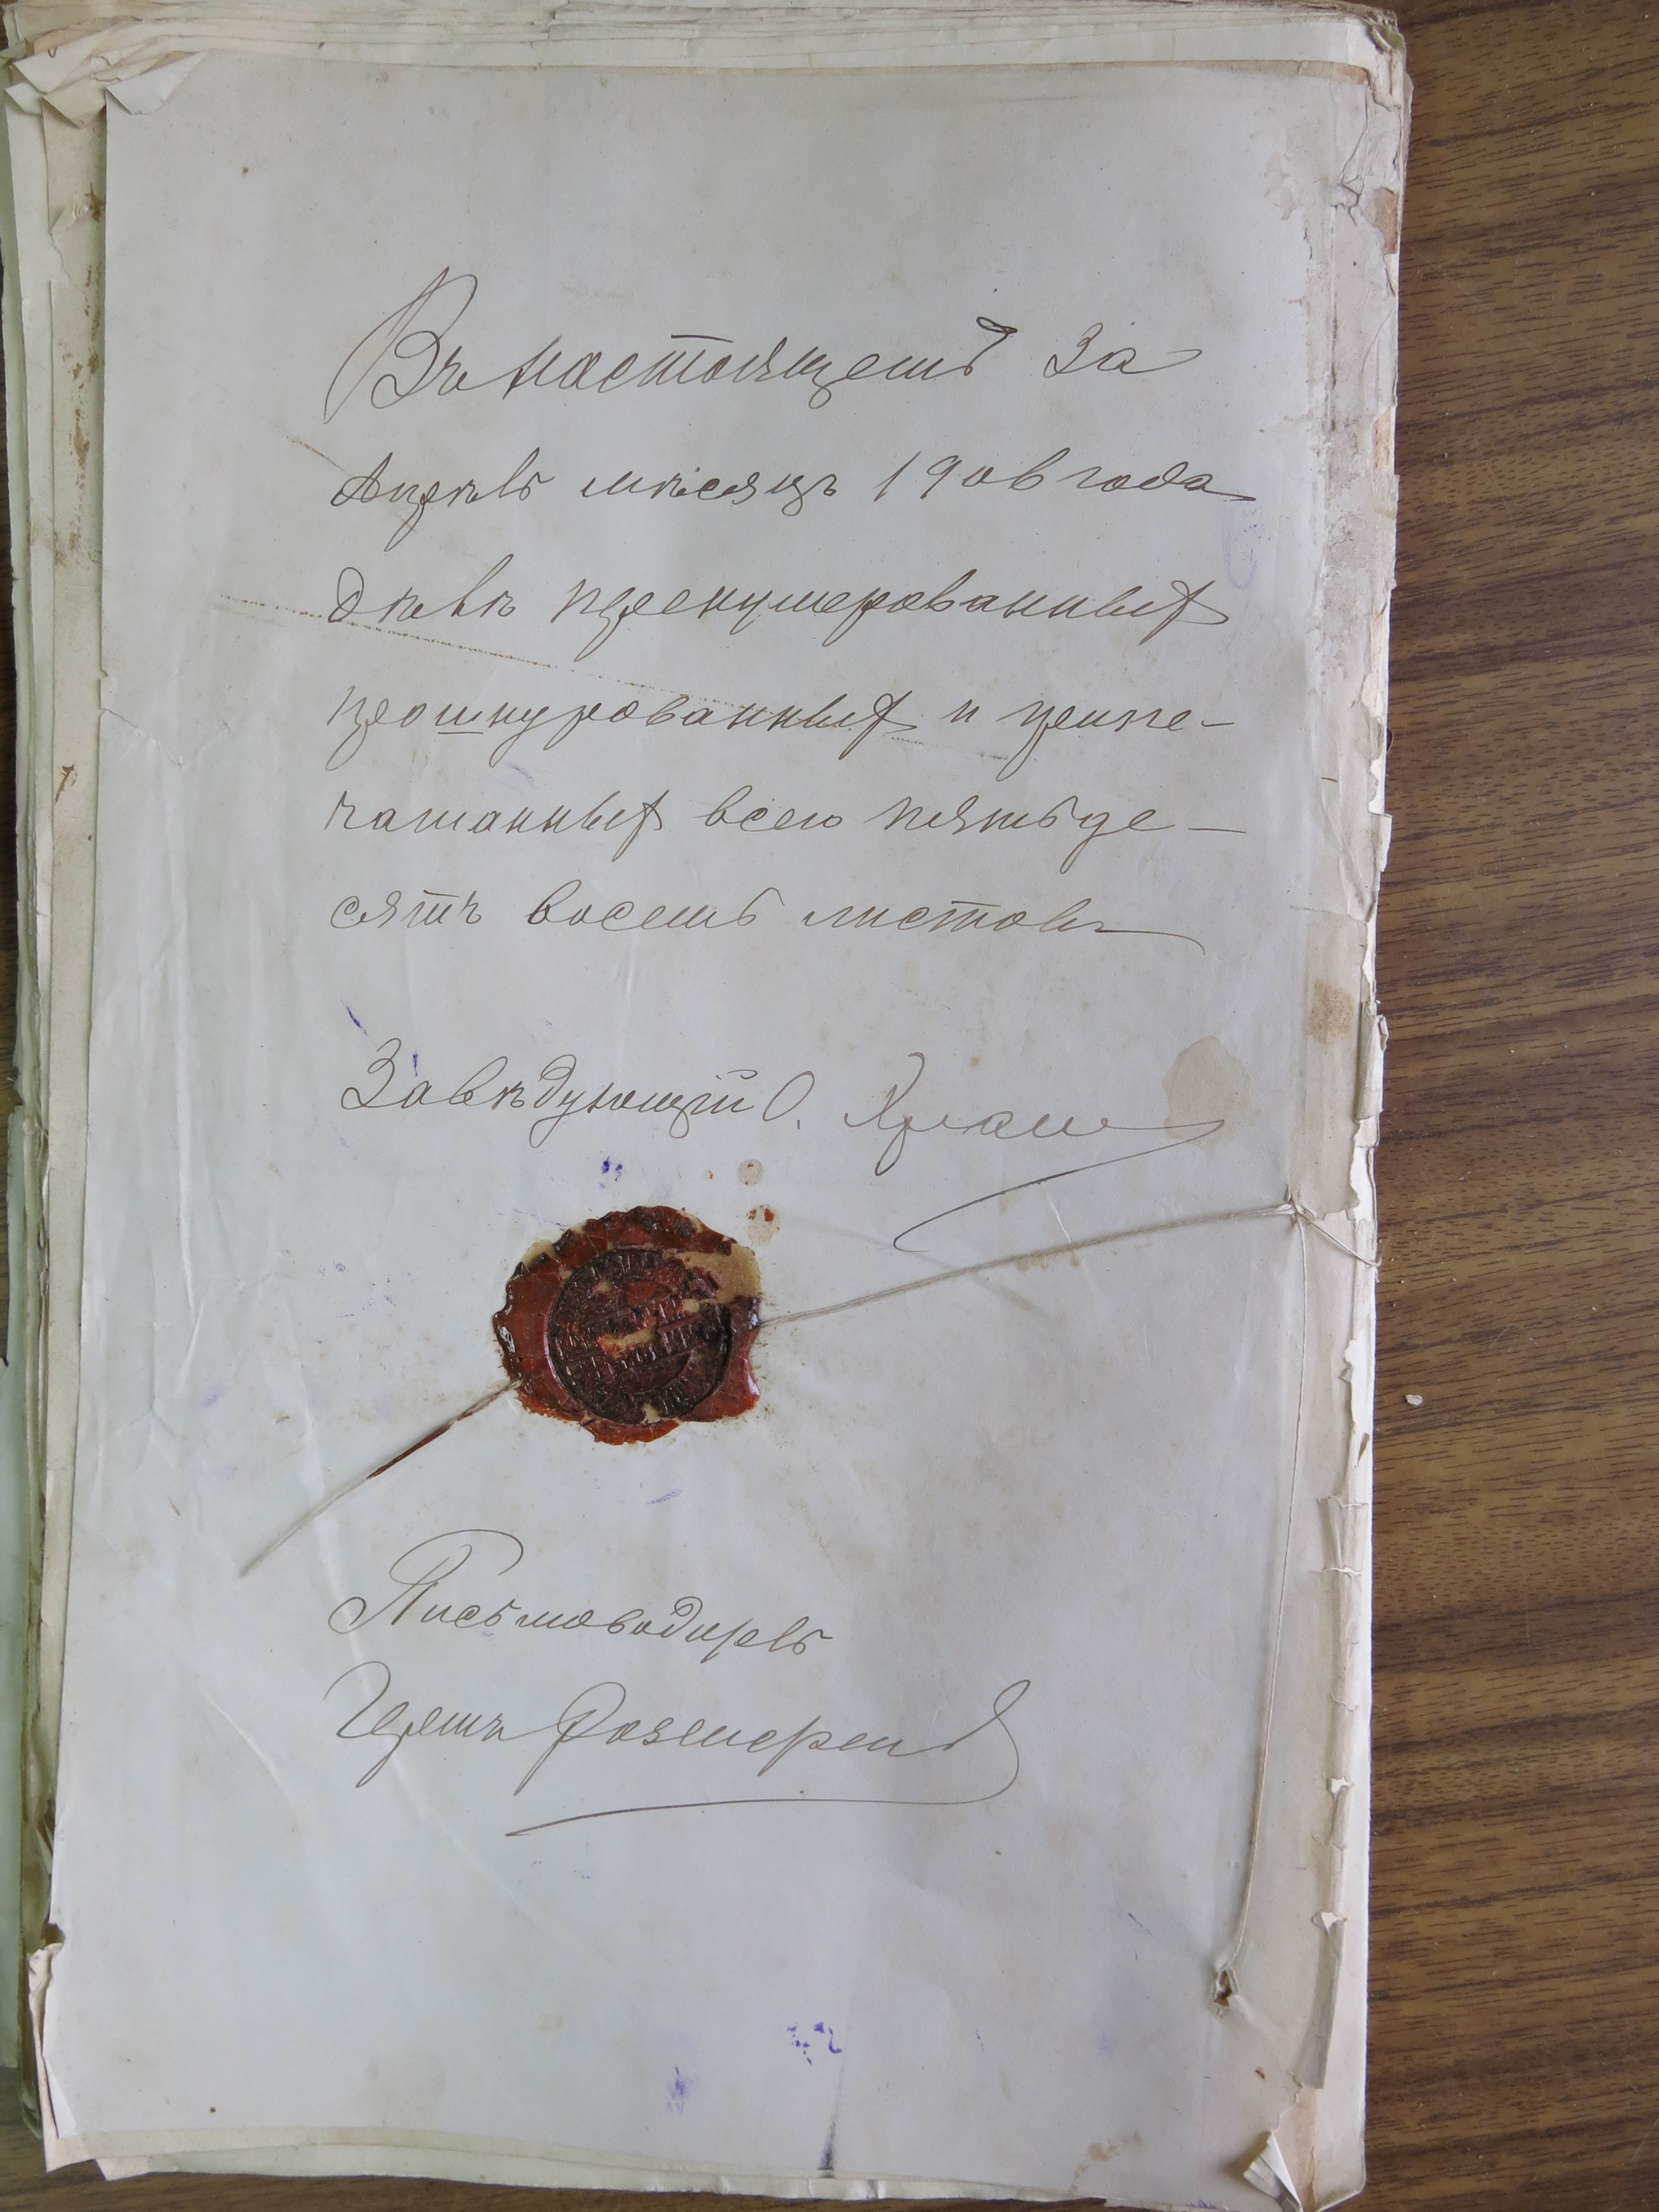 Въ настоящемъ за
Апрель мѣсяцъ 1906 года
дѣлѣ пронумерованныхъ
прошнурованныхъ и припе-
чатанныхъ всего пятьде-
сятъ восемь листовъ
Завѣдующій О.
Письмоводитель